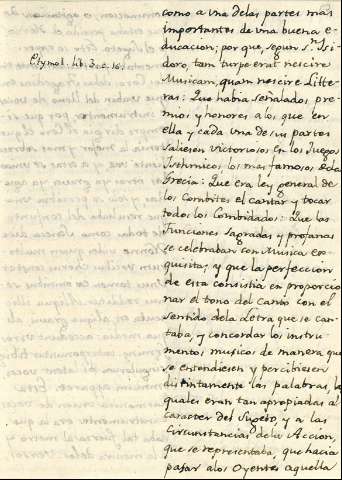 como a vna delas partes mas
importantes de vna buena e-
ducacion; por que, segun S.n Isi-
Etymol. lib. 3. c. 16.
doro, tam turpe erat nescire
Musicam, quam nescire Litte-
ras: Que habia señalados pre-
mios y honores a los que en
ella y cada vna de su partes
saliesen Victoriosos en los Juegos
Isthmicos los mas famosos dela
Grecia: Que era ley general de
los Combites el cantar y tocar
todos los Combidados: Que las
Funciones Sagradas y profanas
se celebraban con Musica ex-
quisita; y que la perfeccion
de esta consistia en proporcio-
nar el tono del Canto con el
sentido dela Letra que se can-
taba, y concordar los instru-
mentos musicos de manera que
se entendiesen y percibiesen
distintamente las palabras, las
quales eran tan apropiadas al
Caracter del Sugeto, y a las
Circunstancias dela Accion,
que se representaba, que hacia
pasar alos Oyentes aquella